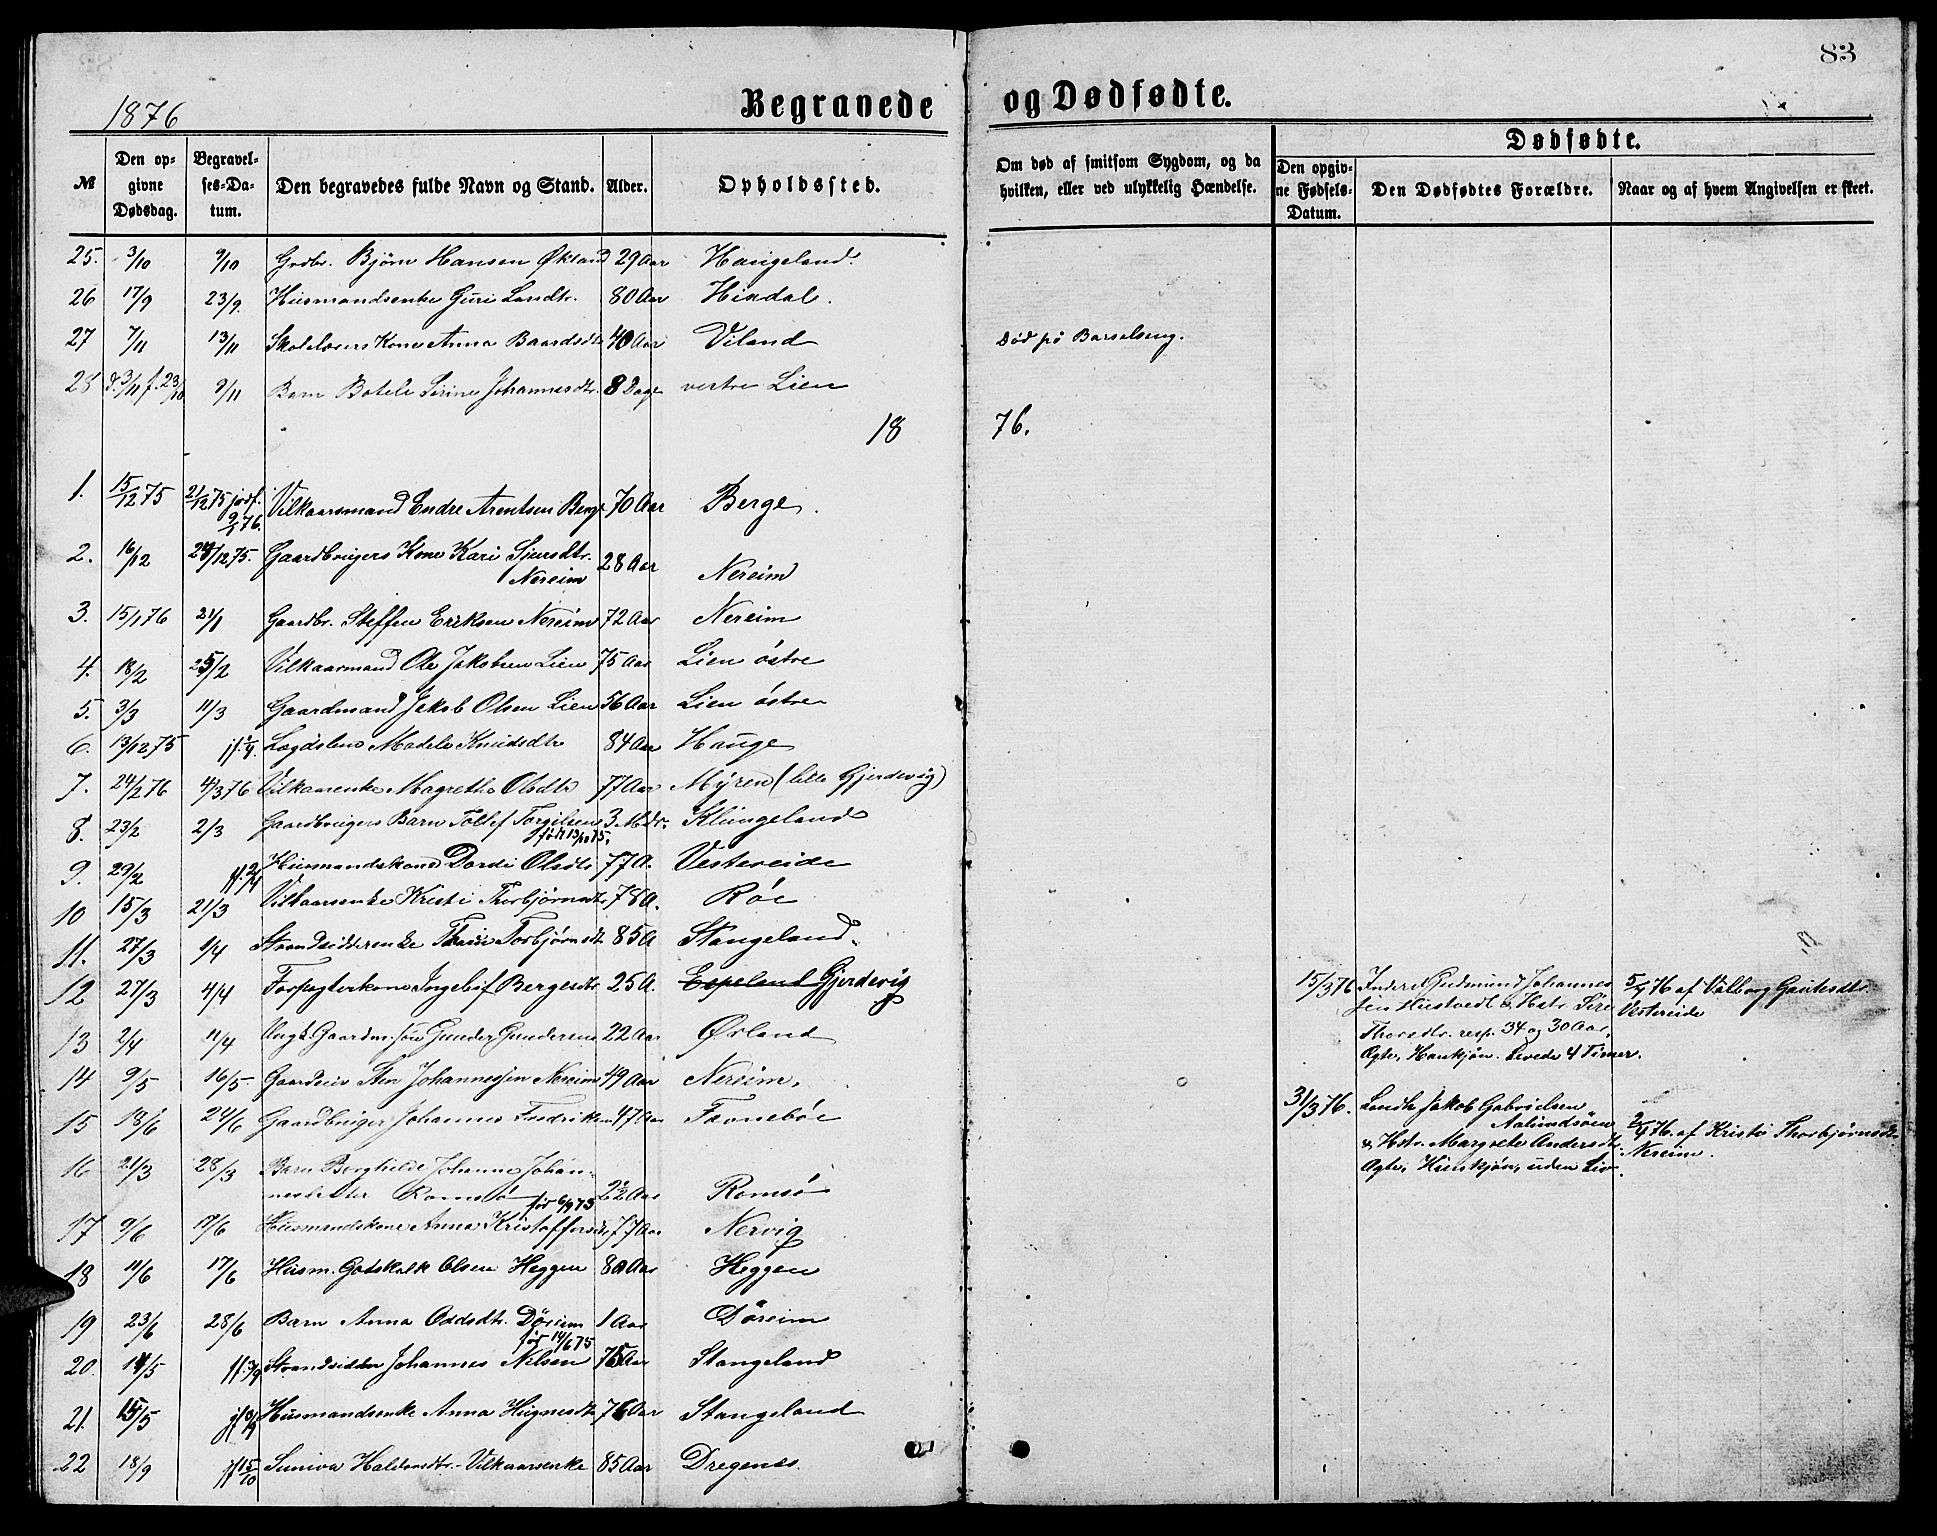 83
1876
Begravede og Dødfødte.
№ | Den opgivne Dødsdag. | Begravelses-Datum. | Den begravedes fulde Navn og Stand. | Alder. | Opholdssted. | Om død af smitsom Sygdom, og da hvilken, eller ved ulykkelig Hændelse. | Dødfødte. Den opgivne Fødsels-Datum. | Den Dødfødtes Forældre. | Naar og af hvem Angivelsen er skeet.
25. 3/10 9/10 Grdbr. Bjørn Hansen Økland 29 Aar Haugeland.
26 17/9 23/9. Husmandsenke Guri Larsdtr. 80 Aar Hindal.
27 7/11 13/11 Skolelærers Kone Anna Baardsdtr 40 Aar Viland Død på Barselseng.
28 d. 3/11 f. 23/10 9/11 Barn Botele Serine Johannesdtr. 8 Dage vestre Lien
1876.
1. 15/12 75 21/12 75 jordf. 9/1 76. Vilkaarsmand Endre Arentsen Berge 70 Aar Berge.
2. 16/12 24/12 75. Gaardbrugers Kone Kari Sjursdtr.
Nereim 28 Aar Nereim
3. 15/1 76 21/1 Gaardbr. Steffen Eriksen Nereim 72 Aar Nereim
4. 18/2 25/2 Vilkaarmand Ole Jakobsen Lien 75 Aar Lien østre
5. 3/3 11/3 Gaardmand Jakob Olsen Lien 56 Aar Lien østre
6. 13/12 75 Lægdslem Madele Knudsdtr 84 Aar Hauge
7. 24/2 76 4/3 76 Vilkaarenke Magrethe Olsdtr 77 Aar Myren (lille Gjerdevig)
8. 23/2 2/3 Gaardbrugers Barn Tollef Torgilsen 3 Mdr. Klungeland
født 13/10 75.
9. 29/2 jf. 2/4 Husmandskone Dordi Olsdtr 77 A. Vestereide
10 15/3 21/3 Vilkaarsenke Kristi Thorbjørnsdtr 78 A. Røe
11. 27/3 1/4 Strandsidderenke Torbjørnsdtr 85 A Stangeland.
12 27/3 4/4 Forpagterkone Ingebor Bergesdtr. 25 A. Espeland Gjerdevig
13 2/4 11/4 Ungk. Gaardm. søn Gunder Gundersen 22 Aar Ørland
14 9/5 16/5 Gaardeier Sten Johannessen Nereim 49 Aar Nereim.
15 18/6 24/6 Gaardbruger Johannes Fredriksen 47 Aar Favnebøe
16 21/3 28/3 Barn Borghilde Johanne Johan-
nesdatter Romsø 2 1/2 Aar Romsø
17 9/6 17/6 Husmandskone Anna Kristoffersdtr 77 Aar Nervig
18 11/6 17/6 Husm. Godskalk Olsen Heggen 80 Aar Heggen
19 23/6 28/6 Barn Anna Oddsdtr. Døreim 1 Aar Døreim
før 14/6 75
20. 14/5 Strandsidder Johannes Nilsen 75 Aar Stangeland
21. 15/5 Husmandsenke Anna Hognesdtr 76 Aar Stangeland
22 18/9 jf. 15/10 Suniva Haldorsdtr. Vilkaarsenke 85 Aar Dregenes.
15/3 76 Inderst Gudmund Johannes- 5/4 76 af Valborg Gautesdtr.
sen Hustvedt & Hstr. Siri Vestereide
Thorsdtr. resp. 34 og 30 Aar,
Ægte, Hankjøn. Levede 4 Timer.
31/3 76. Landh. Jakob Gabrielsen
Aalundsøen 2/4 76. af Kristi Thorbjørnsdtr.
& Hstr. Margrete Andersdtr. Nereim.
Ægte, Hunkjøn, uden Liv.